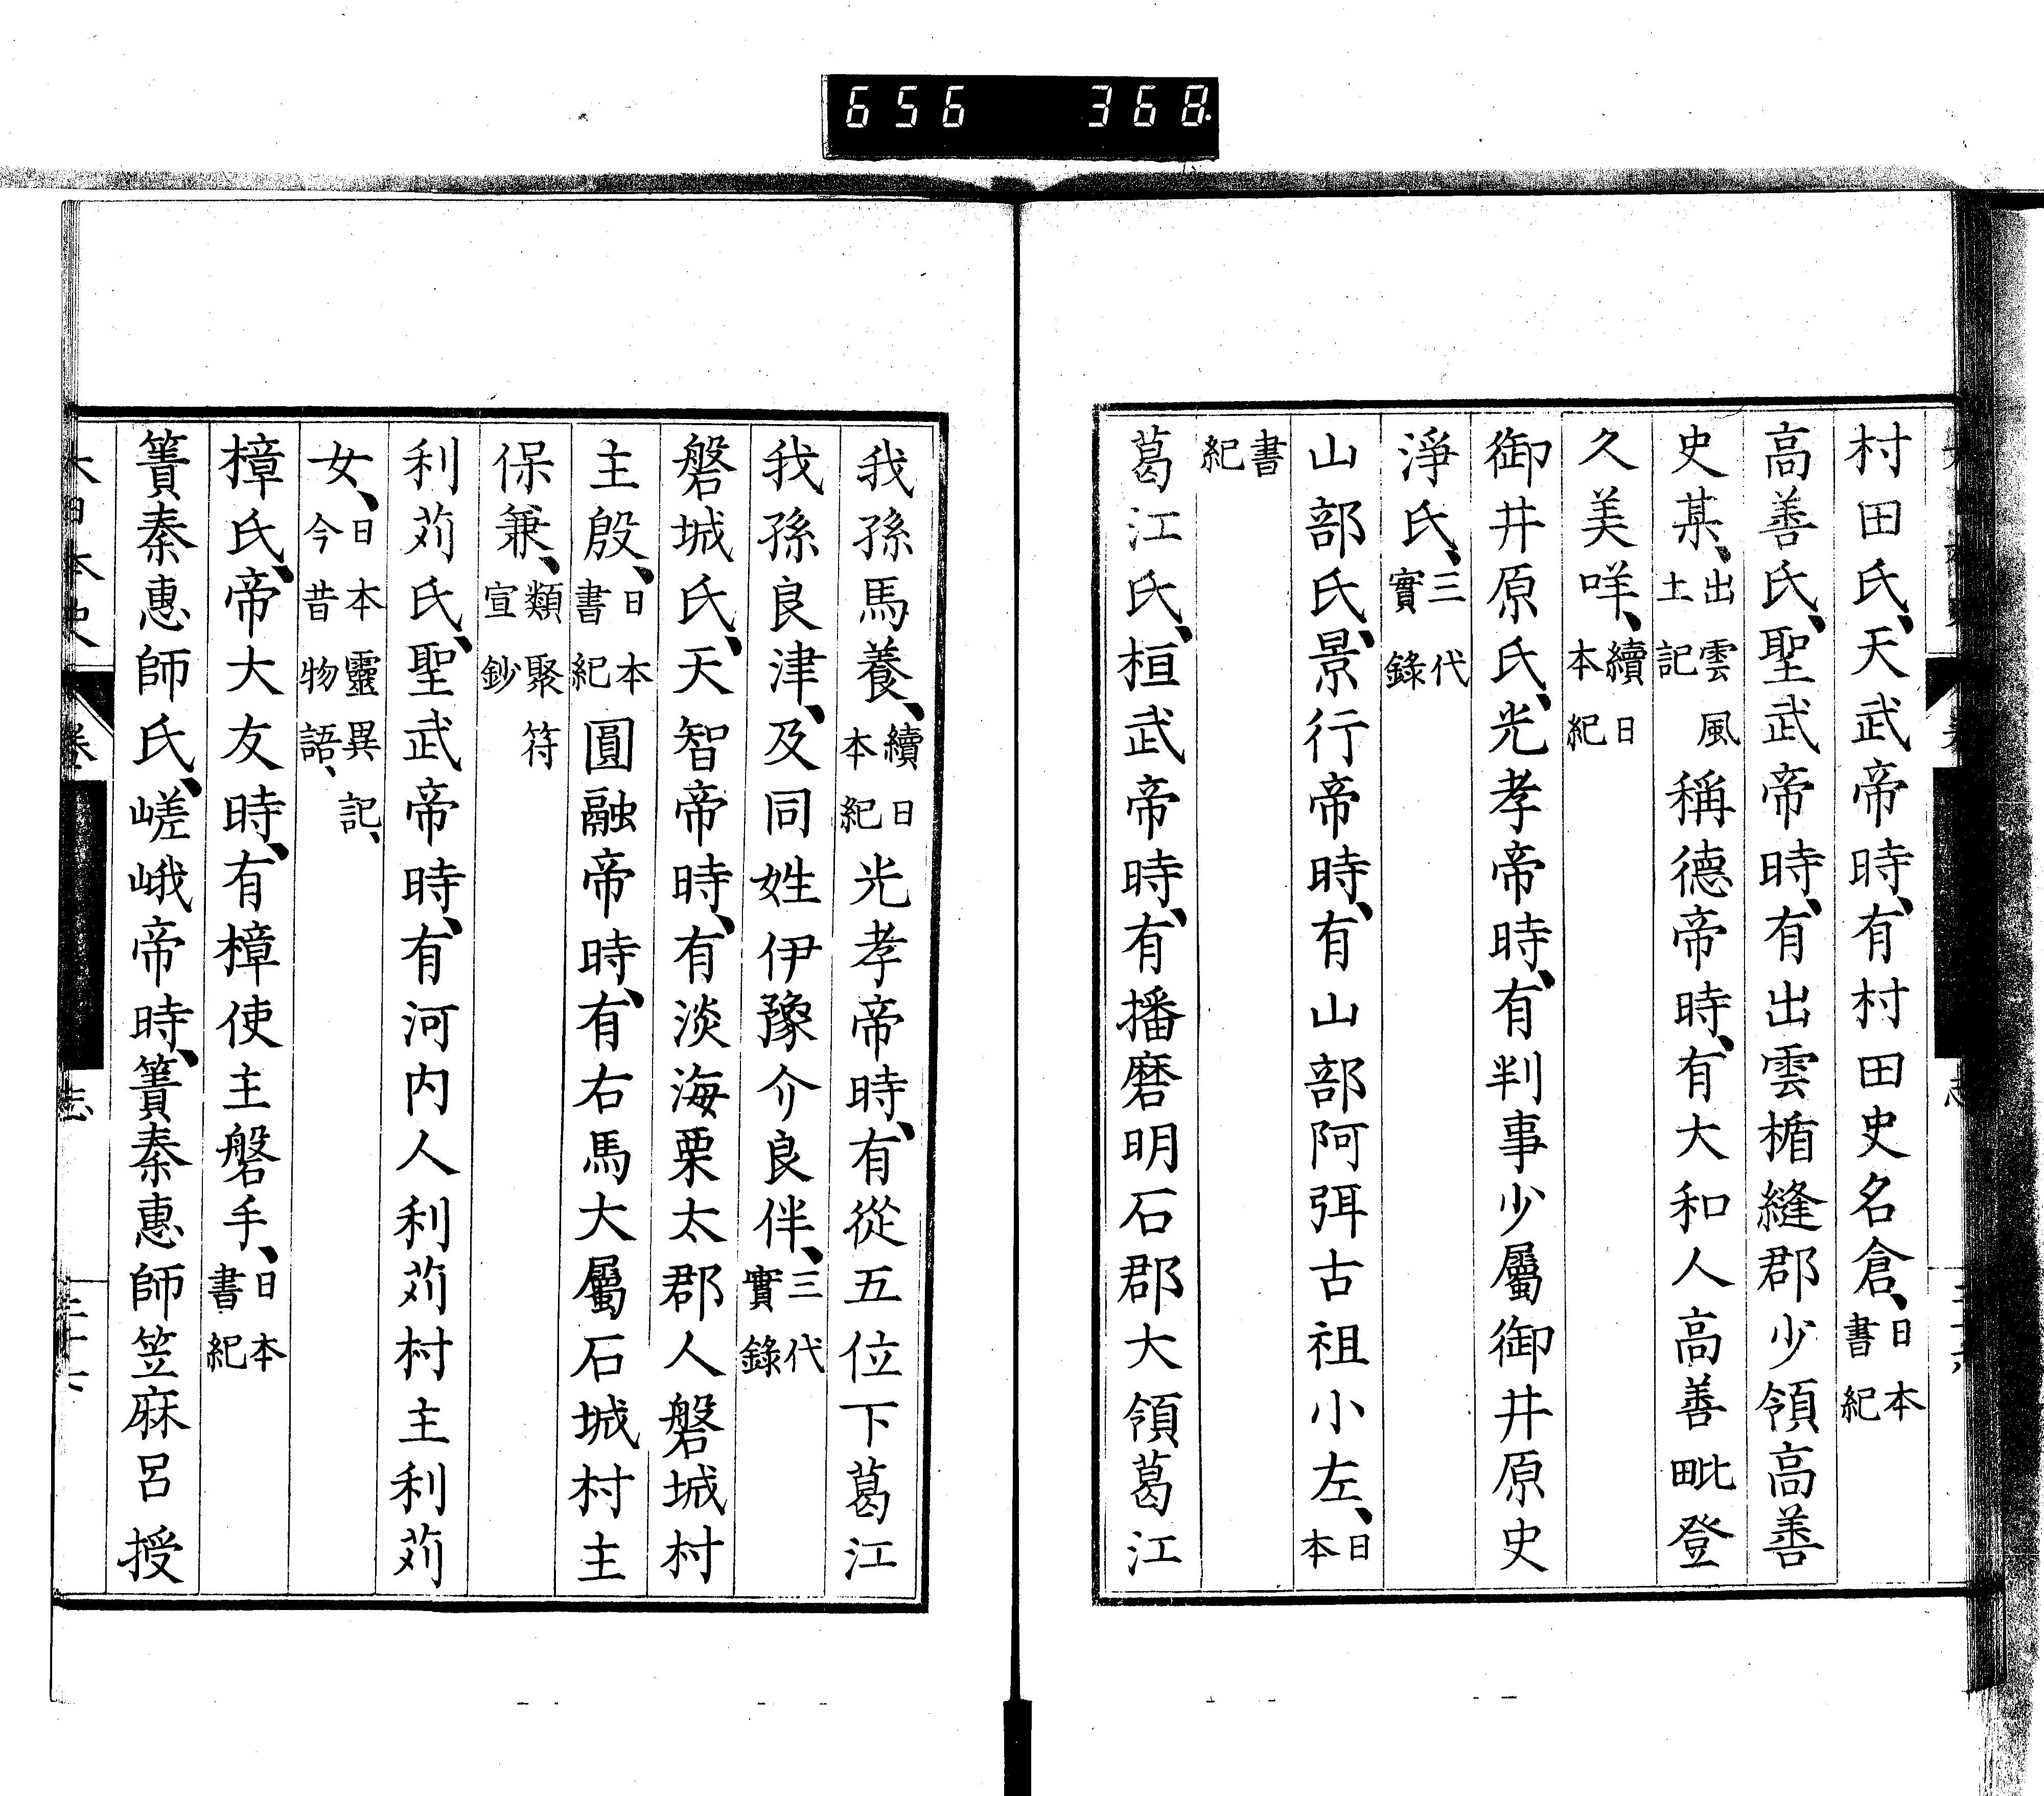 656 368
村田氏、天武帝時、有村田史名倉、日本書紀
高善氏、聖武帝時、有出雲楯縫郡少領高善
史某、出雲風土記稱德帝時、有大和人高善毗登
久美咩、續日本紀
御井原氏、光孝帝時、有判事少屬御井原史
淨氏、三代實錄
山部氏、景行帝時、有山部阿弭古祖小左、日本
書紀
葛江氏、桓武帝時、有播磨明石郡大領葛江
我孫馬養、續日本紀光孝帝時、有從五位下葛江
我孫良津、及同姓伊豫介良伴、三代實錄
磐城氏、天智帝時、有淡海栗太郡人磐城村
主殷、日本書紀圓融帝時、有右馬大屬石城村主
保兼、類聚符宣鈔
利苅氏、聖武帝時、有河内人利苅村主利苅
女、日本靈異記、今昔物語、
樟氏、帝大友時、有樟使主磐手、日本書紀
簀秦惠師氏、嵯峨帝時、簀秦惠師笠麻呂授
大日本史 卷 志